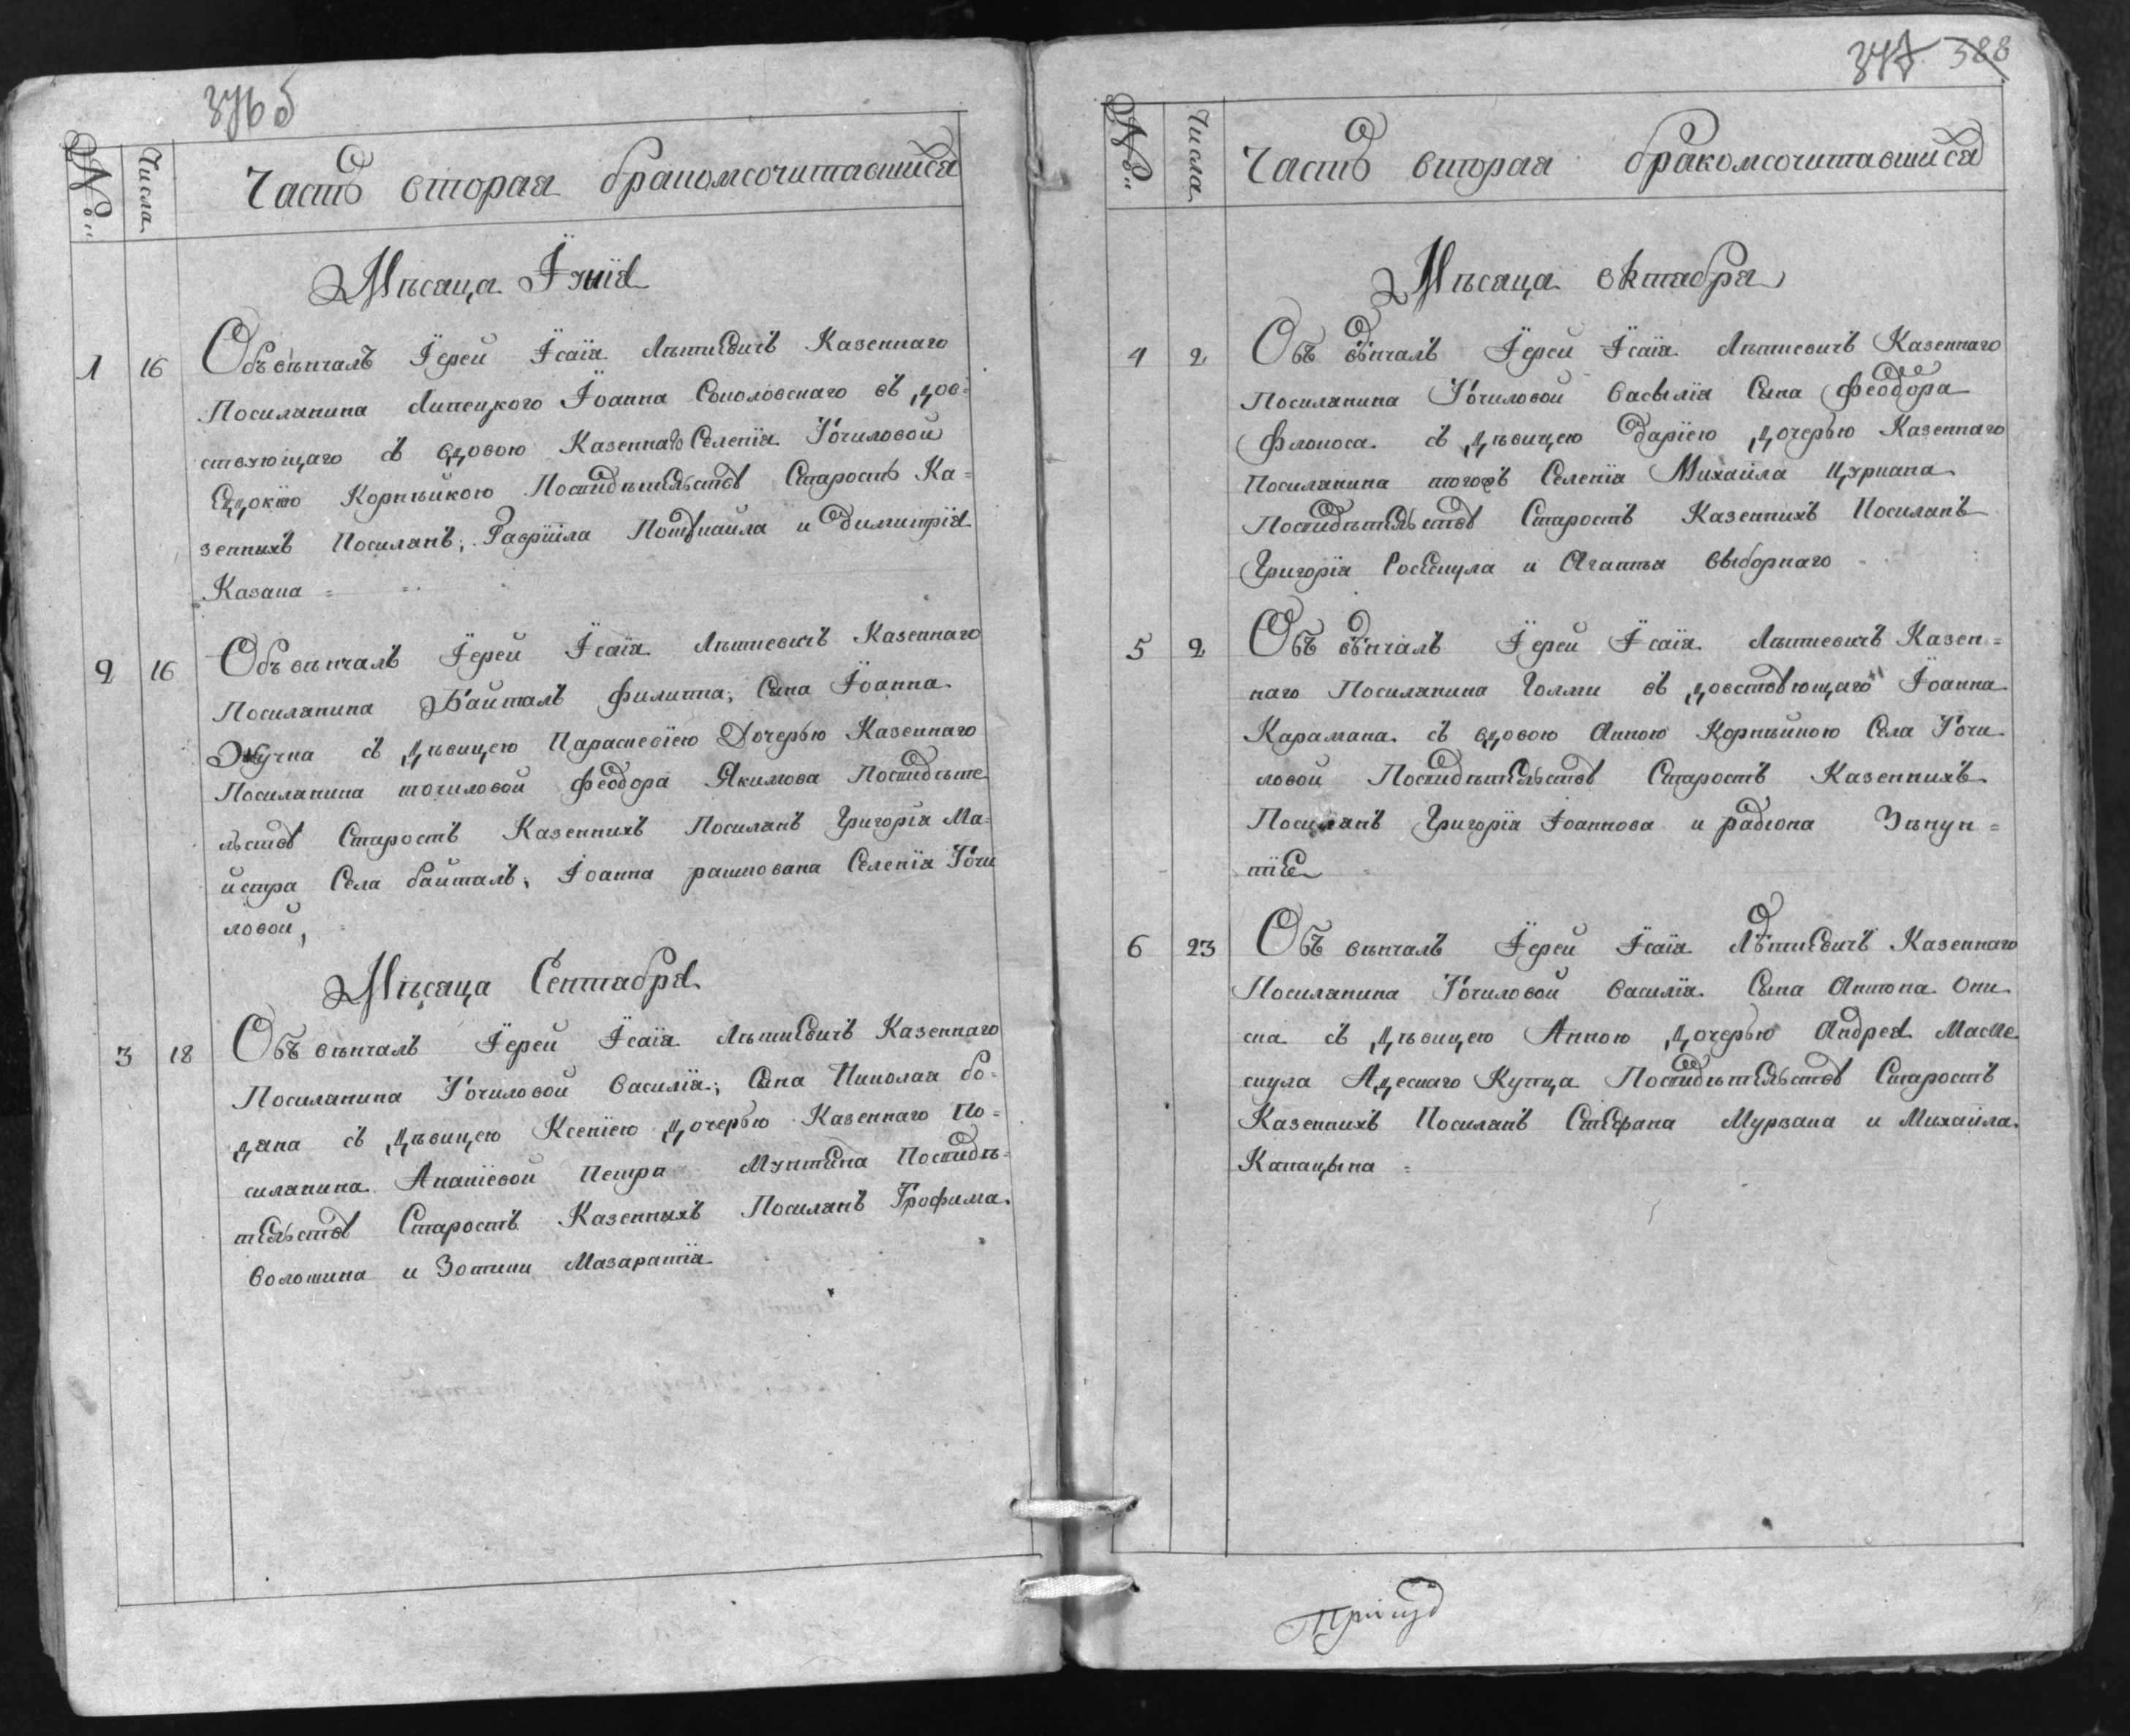 376 б
№ Числа Часть вторая бракомсочитавшися
Мѣсяца Іуніа
1 16 Объвѣнчалъ Іерей Ісаіа Лѣтиевичъ Казеннаго
Посиланина Липецкого Іоанна Соколовскаго въ дов=
ствующаго съ вдовою Казеннаго Селеніа Точиловой
Евдокіею Корнѣйкою Посвидѣтельству Старостъ Ка=
зеннихъ Посиланъ; Гавріила и Димитріа
Казака =
2 16 Объвѣнчалъ Іерей Ісаіа Лѣтиевичъ Казеннаго
Посиланина Байталъ Филиппа; Сына Іоанна
съ дѣвицею Параскевіею Дочерью Казеннаго
Посиланина точиловой Феодора Якимова Посвидѣте
льству Старостъ Казеннихъ Посиланъ Григоріа Ма=
йстра Села байталъ; Іоанна рашкована Селеніа Точи
ловой,
Мѣсяца Септабра
3 18 Объвѣнчалъ Іерей Ісаіа Лѣтиевичъ Казеннаго
Посиланина Точиловой Василіа; Сына Николая бо=
дана съ дѣвицею Ксеніею дочерью Казеннаго По=
силанина Ананіевой Петра Мунтяна Посвидѣ=
тельству Старостъ Казенныхъ Посиланъ Трофима
Волошина и Зотики Мазаратіа
347 388
№ Числа Часть вторая бракомсочитавшися
Мѣсяца октабра
4 2 Объвѣнчалъ Іерей Ісаіа Лѣтиевичъ Казеннаго
Посиланина Точиловой Васыліа Сына Феодора
Флокоса съ дѣвицею Даріею дочерью Казеннаго
Посиланина тогожъ Селеніа Михаила Цуркана
Посвидѣтельству Старостъ Казеннихъ Посиланъ
Григоріа и Агапіа выборнаго
5 2 Объвѣнчалъ Іерей Ісаіа Лѣтиевичъ Казен=
наго Посиланина Голми въ довствующаго Іоанна
Карамана съ вдовою Анною Корнѣйкою Села Точи
ловой Посвидѣтельству Старостъ Казеннихъ
Посиланъ Григоріа Іоаннова и радіона
6 23 Объвѣнчалъ Іерей Ісаіа Лѣтиевичъ Казеннаго
Посиланина Точиловой Василіа Сына Антона Они
ска съ дѣвицею Анною дочерью Андрея Масле
скула Адескаго Купца Посвидѣтельству Старостъ
Казеннихъ Посиланъ Стефана Мурзака и Михаила
Капацына =